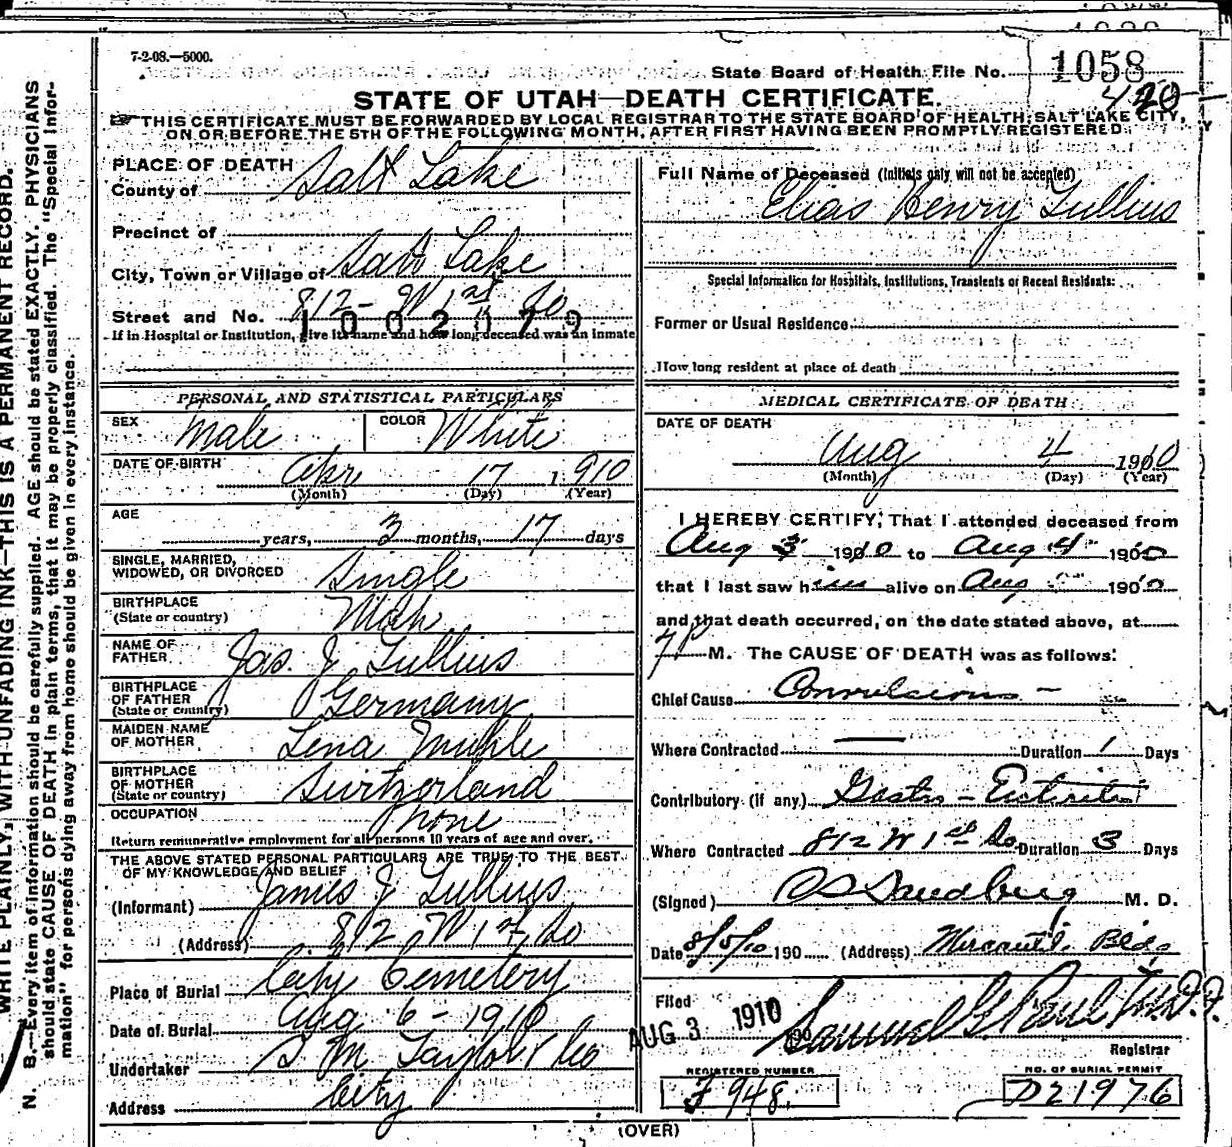 7-2-08.—5000.
State Board of Health File No. 1058
420
STATE OF UTAH—DEATH CERTIFICATE.
THIS CERTIFICATE MUST BE FORWARDED BY LOCAL REGISTRAR TO THE STATE BOARD OF HEALTH, SALT LAKE CITY,
ON OR BEFORE THE 5TH OF THE FOLLOWING MONTH, AFTER FIRST HAVING BEEN PROMPTLY REGISTERED.
WRITE PLAINLY, WITH UNFADING INK—THIS IS A PERMANENT RECORD.
N. B.—Every item of information should be carefully supplied. AGE should be stated EXACTLY. PHYSICIANS
should state CAUSE OF DEATH in plain terms, that it may be properly classified. The "Special Infor-
mation" for persons dying away from home should be given in every instance.
PLACE OF DEATH
County of Salt Lake
Precinct of
City, Town or Village of Salt Lake
Street and No. 812 - W 1st So
1002079
If in Hospital or Institution, give its name and how long deceased was an inmate
PERSONAL AND STATISTICAL PARTICULARS
SEX Male COLOR White
DATE OF BIRTH Apr 17 1910
(Month) (Day) (Year)
AGE
years, 3 months, 17 days
SINGLE, MARRIED,
WIDOWED, OR DIVORCED Single
BIRTHPLACE
(State or country)
NAME OF
FATHER Jas. J Tullius
BIRTHPLACE
OF FATHER
(State or country) Germany
MAIDEN NAME
OF MOTHER Lena Muhle
BIRTHPLACE
OF MOTHER
(State or country) Switzerland
OCCUPATION None
Return remunerative employment for all persons 10 years of age and over.
THE ABOVE STATED PERSONAL PARTICULARS ARE TRUE TO THE BEST
OF MY KNOWLEDGE AND BELIEF
(Informant) James J Tullius
(Address) 812 W 1st So
Place of Burial City Cemetery
Date of Burial Aug 6 - 1910
Undertaker S M Taylor & Co
Address City
Full Name of Deceased (Initials only will not be accepted)
Elias Henry Tullius
Special Information for Hospitals, Institutions, Transients or Recent Residents:
Former or Usual Residence
How long resident at place of death
MEDICAL CERTIFICATE OF DEATH
DATE OF DEATH
Aug 4 1910
(Month) (Day) (Year)
I HEREBY CERTIFY, That I attended deceased from
Aug 3 1910 to Aug 4 1910
that I last saw him alive on Aug 1910
and that death occurred, on the date stated above, at
7 P M. The CAUSE OF DEATH was as follows:
Chief Cause Convulsions -
Where Contracted — Duration 1 Days
Contributory (if any) Gastro - Enteritis
Where Contracted 812 W 1st So Duration 3 Days
(Signed) Sandberg M. D.
Date 8/5/10 190 (Address) Mercantil. Bldg
Filed AUG 3 1910 190
Samuel G Paul M.D.
Registrar
REGISTERED NUMBER
F 948
NO. OF BURIAL PERMIT
D21976
(OVER)